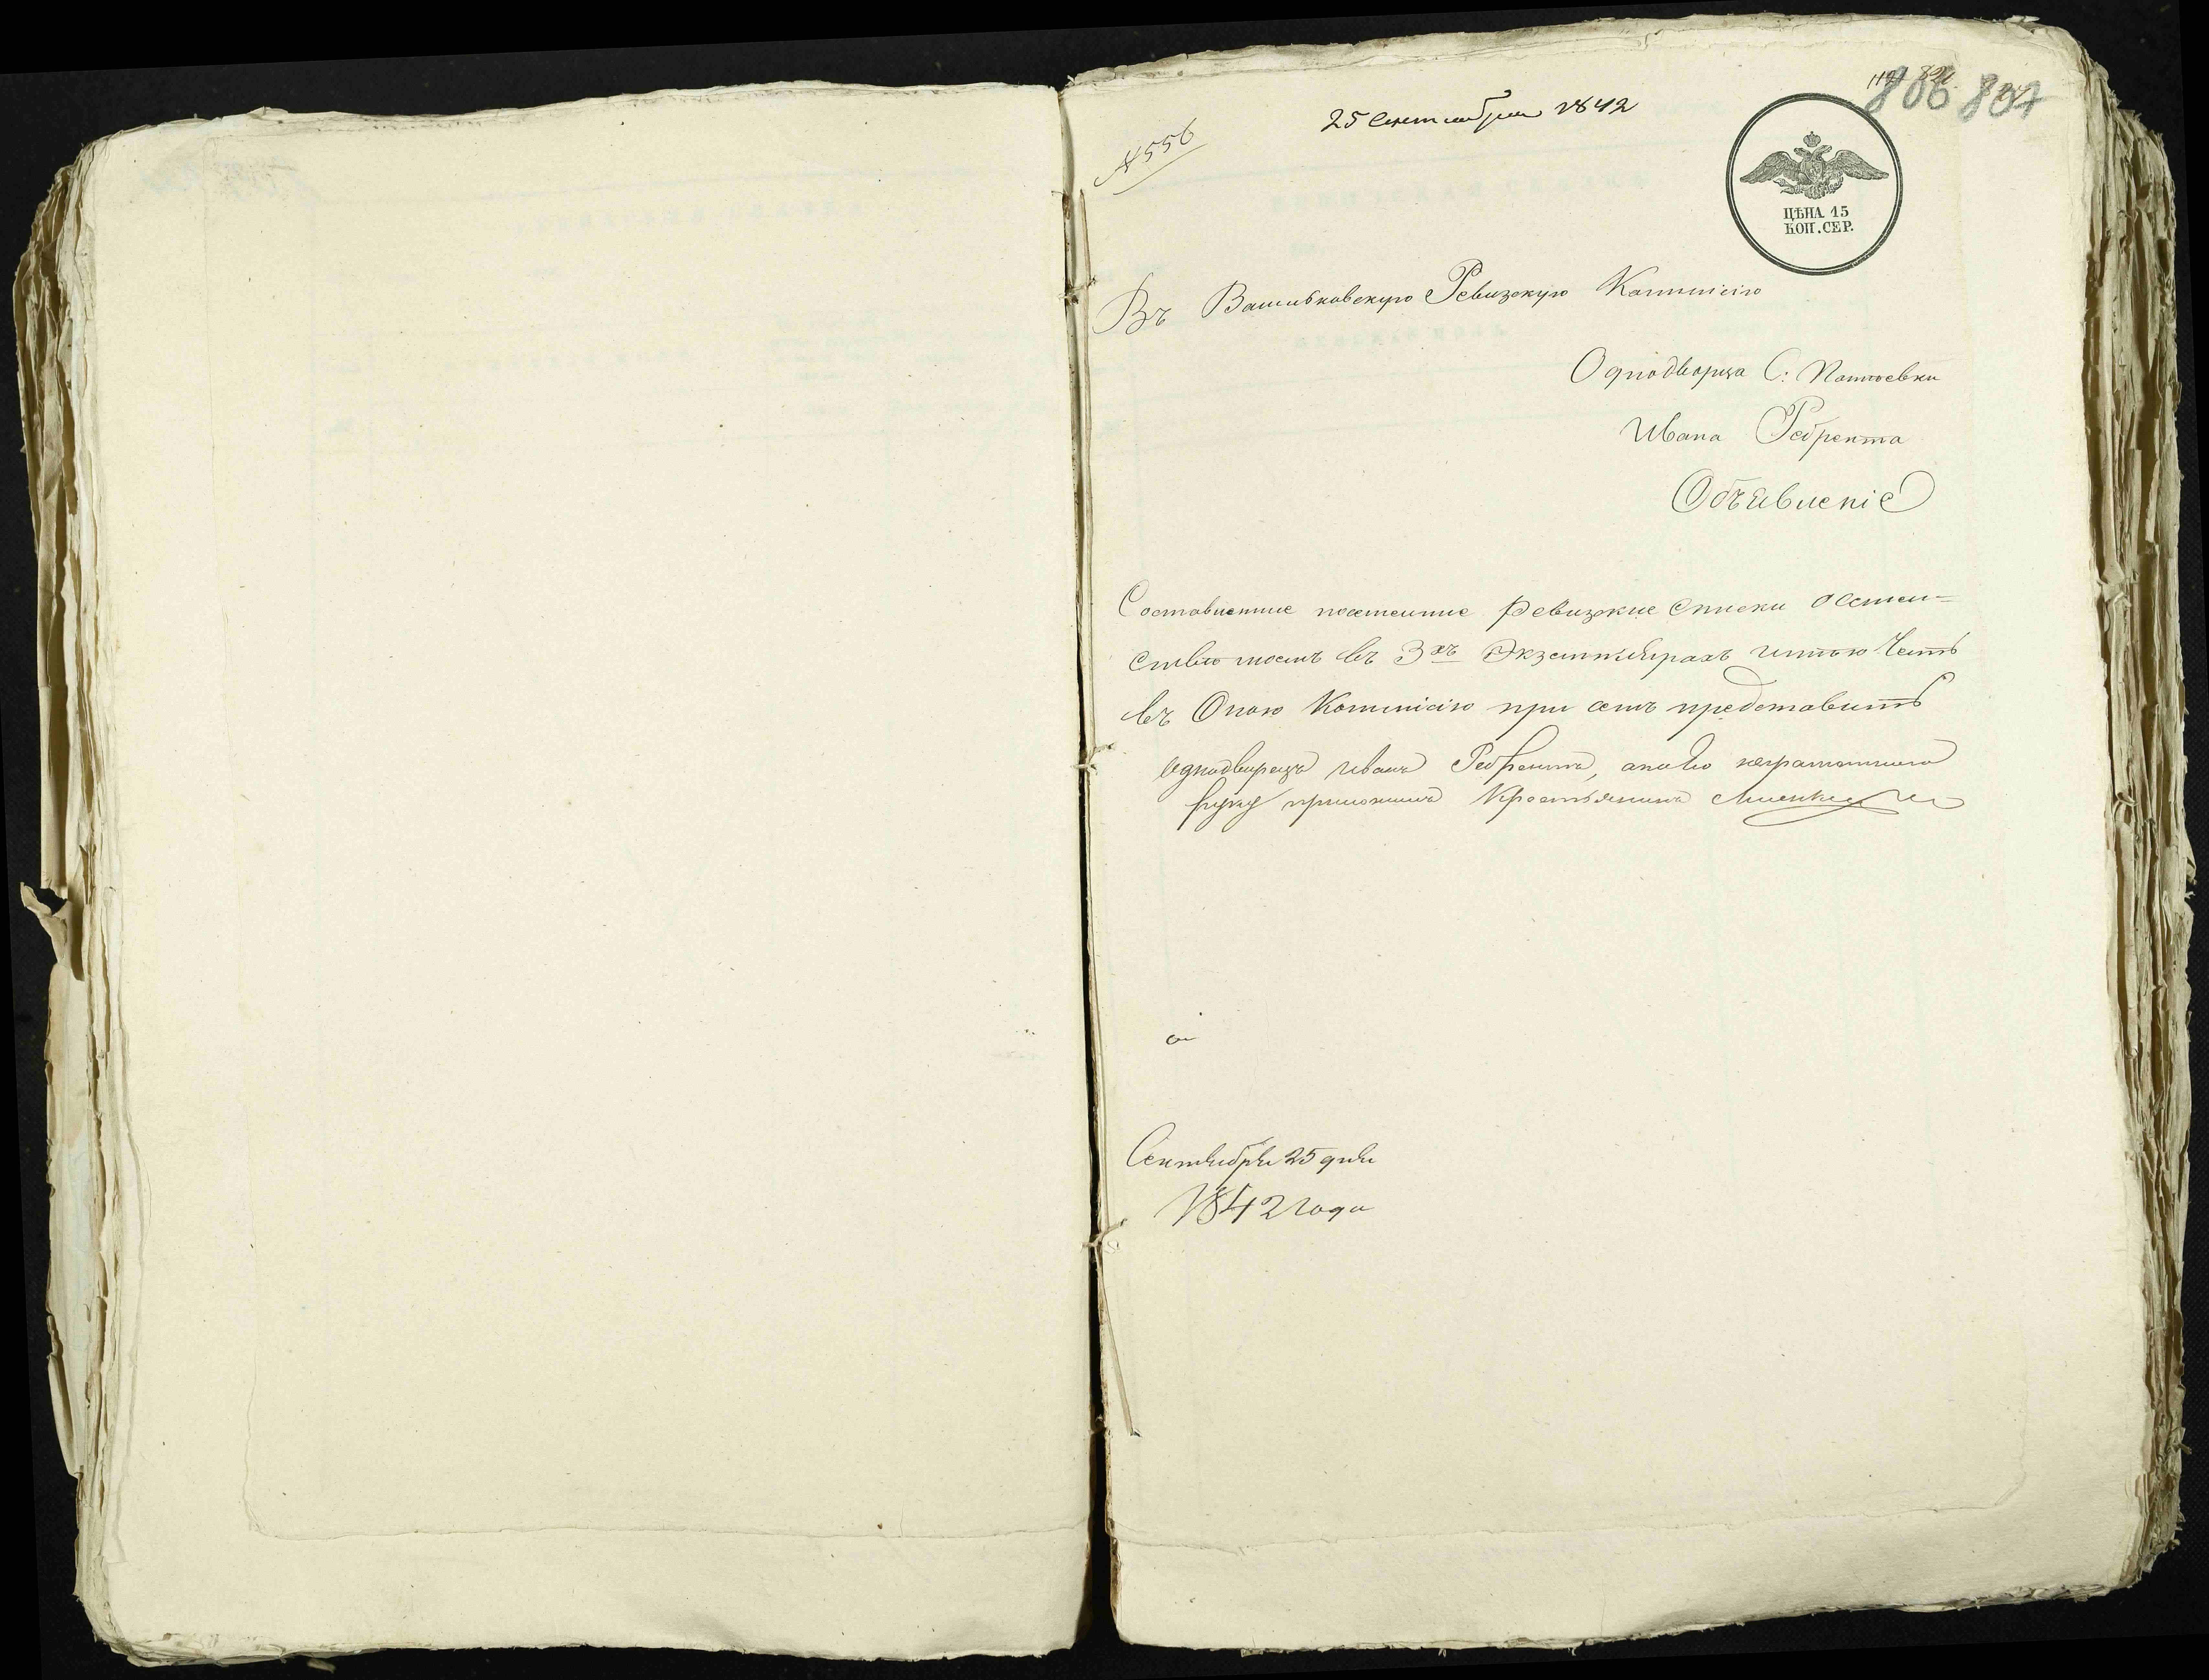 25 Сентября 1842
№ 556
806 807
ЦѢНА 15
КОП. СЕР.
Въ Васильковскую Ревизскую Коммисію
Однодворца С:
Ивана Ребрента
Объявленіе
Составленные Ревизские списки о семей-
стве моемъ въ 3хъ Экземплярахъ имѣю Честь
въ Оную Коммисію при семъ представить
Однодворецъ Иванъ Ребрентъ, а неграмотнаго
руку приложилъ Крестьянинъ
Сентября 25 дня
1842 года